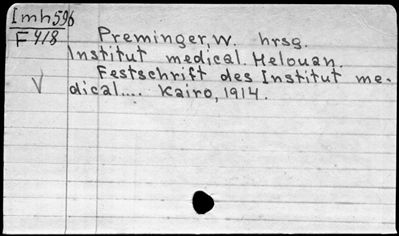 Imh596
F418
Preminger, W. hrsg.
Institut medical. Helouan.
Festschrift des Institut me-
dical.... Kairo, 1914.